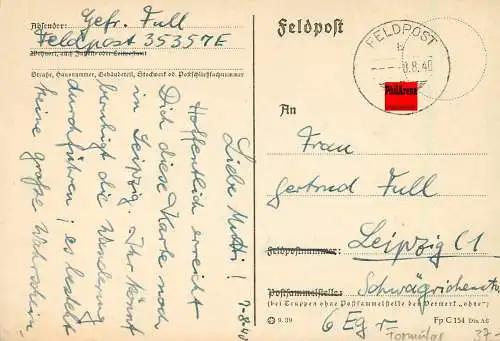 Absender: Gefr. Full
Feldpost 35357E
Wohnort, auch Zustell- oder Leitpostamt
Straße, Hausnummer, Gebäudeteil, Stockwerk od. Postschließfachnummer
7-8.40
Liebe Mutti!
Hoffentlich erreicht
Dich diese Karte noch
in Leipzig. Ihr könnt
beruhigt die Wanderung
durchführen; es besteht
keine große Wahrschein-
Feldpost
FELDPOST
b
8.40
PhilArena
An
Frau
Gertrud Full
Feldpostnummer: Leipzig C1
Postsammelstelle: Schwägrichenstr
(bei Truppen ohne Postsammelstelle den Vermerk „ohne“)
6 Eg r
9. 39
Fp C 154 Din A6
Formular 37-